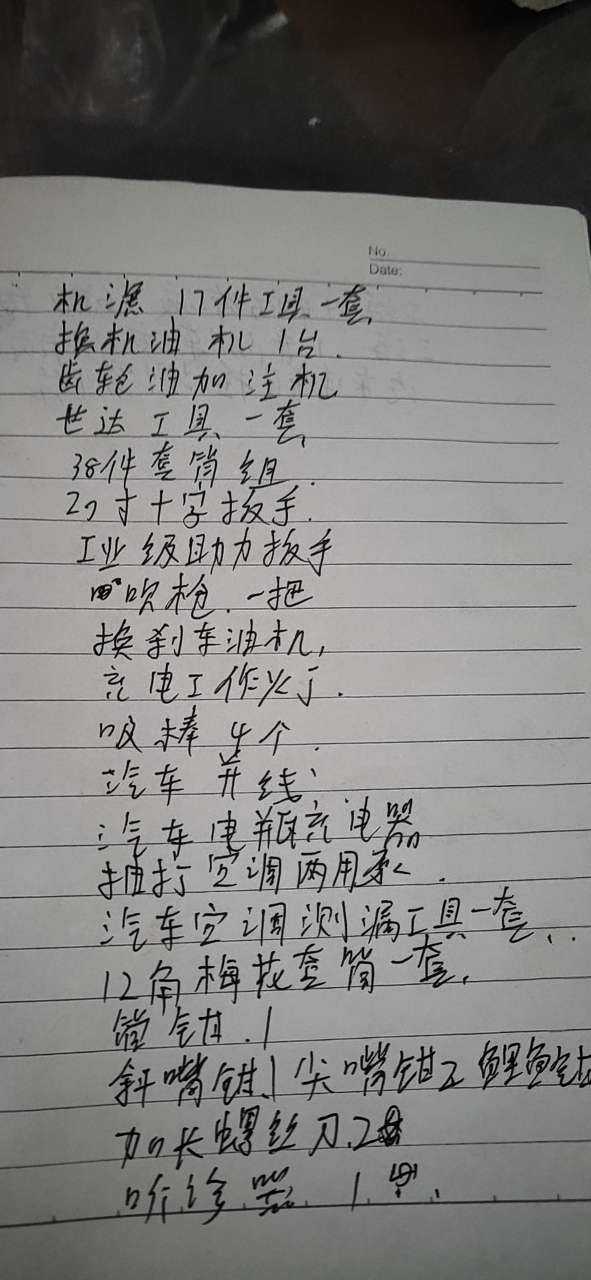 No.
Date:
机滤 17件工具一套
换机油机 1台.
齿轮油加注机
世达工具一套
38件套筒组.
20寸十字扳手.
工业级助力扳手
吹枪.一把
换刹车油机,
充电工作灯.
吸棒 4个.
汽车并线;
汽车电瓶充电器
抽打空调两用泵.
汽车空调测漏工具一套.
12角梅花套筒一套.
钳.1
斜嘴钳.1 尖嘴钳2 鲤鱼钳
加长螺丝刀.2
听诊器 1